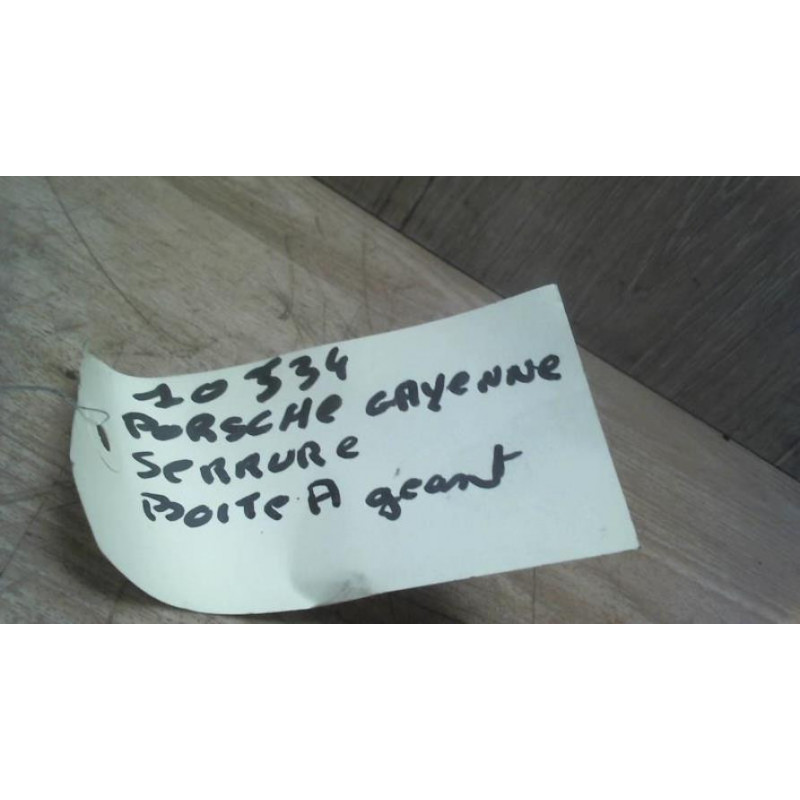 10 534
PORSCHE CAYENNE
SERRURE
BOITE A geant